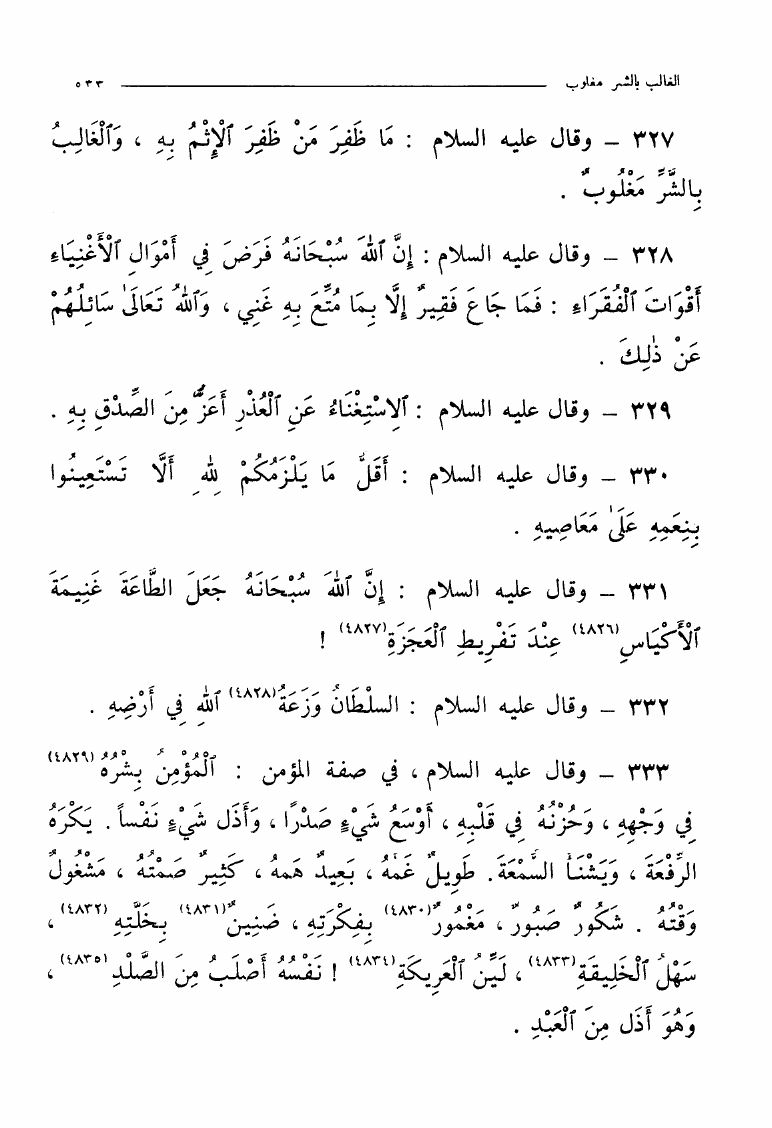 الغالب بالشر مغلوب ـــــــــــــــــــــــــــــ ٥٣٣
٣٢٧ – وقال عليه السلام : مَا ظَفِرَ مَنْ ظَفِرَ ٱلْإِثْمُ بِهِ ، وَٱلْغَالِبُ
بِالشَّرِّ مَغْلُوبٌ .
٣٢٨ – وقال عليه السلام : إِنَّ ٱللهَ سُبْحَانَهُ فَرَضَ فِي أَمْوَالِ ٱلْأَغْنِيَاءِ
أَقْوَاتَ ٱلْفُقَرَاءِ : فَمَا جَاعَ فَقِيرٌ إِلَّا بِمَا مُتِّعَ بِهِ غَنِي ، وَٱللهُ تَعَالَىٰ سَائِلُهُمْ
عَنْ ذٰلِكَ .
٣٢٩ – وقال عليه السلام : ٱلِاسْتِغْنَاءُ عَنِ ٱلْعُذْرِ أَعَزُّ مِنَ الصِّدْقِ بِهِ .
٣٣٠ – وقال عليه السلام : أَقَلُّ مَا يَلْزَمُكُمْ لِلهِ أَلَّا تَسْتَعِينُوا
بِنِعَمِهِ عَلَىٰ مَعَاصِيهِ .
٣٣١ – وقال عليه السلام : إِنَّ ٱللهَ سُبْحَانَهُ جَعَلَ الطَّاعَةَ غَنِيمَةَ
ٱلْأَكْيَاسِ(٤٨٢٦) عِنْدَ تَفْرِيطِ ٱلْعَجَزَةِ(٤٨٢٧) !
٣٣٢ – وقال عليه السلام : السلْطَانُ وَزَعَةُ(٤٨٢٨) ٱللهِ فِي أَرْضِهِ .
٣٣٣ – وقال عليه السلام ، في صفة المؤمن : ٱلْمُؤْمِنُ بِشْرُهُ(٤٨٢٩)
فِي وَجْهِهِ ، وَحُزْنُهُ فِي قَلْبِهِ ، أَوْسَعُ شَيْءٍ صَدْرًا ، وَأَذَل شَيْءٍ نَفْساً . يَكْرَهُ
الرِّفْعَةَ ، وَيَشْنَأُ السُّمْعَةَ . طَوِيلٌ غَمُّهُ ، بَعِيدٌ هَمهُ ، كَثِيرٌ صَمْتُهُ ، مَشْغُولٌ
وَقْتُهُ . شَكُورٌ صَبُورٌ ، مَغْمُورٌ(٤٨٣٠) بِفِكْرَتِهِ ، ضَنِينٌ(٤٨٣١) بِخَلَّتِهِ(٤٨٣٢) ،
سَهْلُ ٱلْخَلِيقَةِ(٤٨٣٣) ، لَيِّنُ ٱلْعَرِيكَةِ(٤٨٣٤) ! نَفْسُهُ أَصْلَبُ مِنَ الصَّلْدِ(٤٨٣٥) ،
وَهُوَ أَذَل مِنَ ٱلْعَبْدِ .